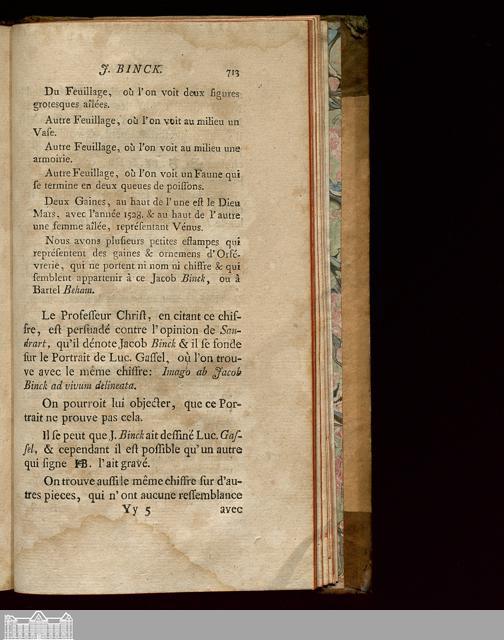 J. BINCK. 713
Du Feuillage, où l'on voit deux figures
grotesques aîlées.
Autre Feuillage, où l'on voit au milieu un
Vaſe.
Autre Feuillage, où l'on voit au milieu une
armoirie.
Autre Feuillage, où l'on voit un Faune qui
ſe termine en deux queues de poiſſons.
Deux Gaines, au haut de l'une eſt le Dieu
Mars, avec l'année 1528. & au haut de l'autre
une femme aîlée, repréſentant Vénus.
Nous avons pluſieurs petites eſtampes qui
repréſentent des gaines & ornemens d'Orfé-
vrerie, qui ne portent ni nom ni chiffre & qui
ſemblent appartenir à ce Jacob Binck, ou à
Bartel Beham.
Le Profeſſeur Chriſt, en citant ce chif-
fre, eſt perſuadé contre l'opinion de San-
drart, qu'il dénote Jacob Binck & il ſe fonde
ſur le Portrait de Luc. Gaſſel, où l'on trou-
ve avec le même chiffre: Imago ab Jacob
Binck ad vivum delineata.
On pourroit lui objecter, que ce Por-
trait ne prouve pas cela.
Il ſe peut que J. Binck ait deſſiné Luc. Gaſ-
ſel, & cependant il eſt poſſible qu'un autre
qui ſigne HB. l'ait gravé.
On trouve auſſi le même chiffre ſur d'au-
tres pieces, qui n'ont aucune reſſemblance
Yy 5 avec